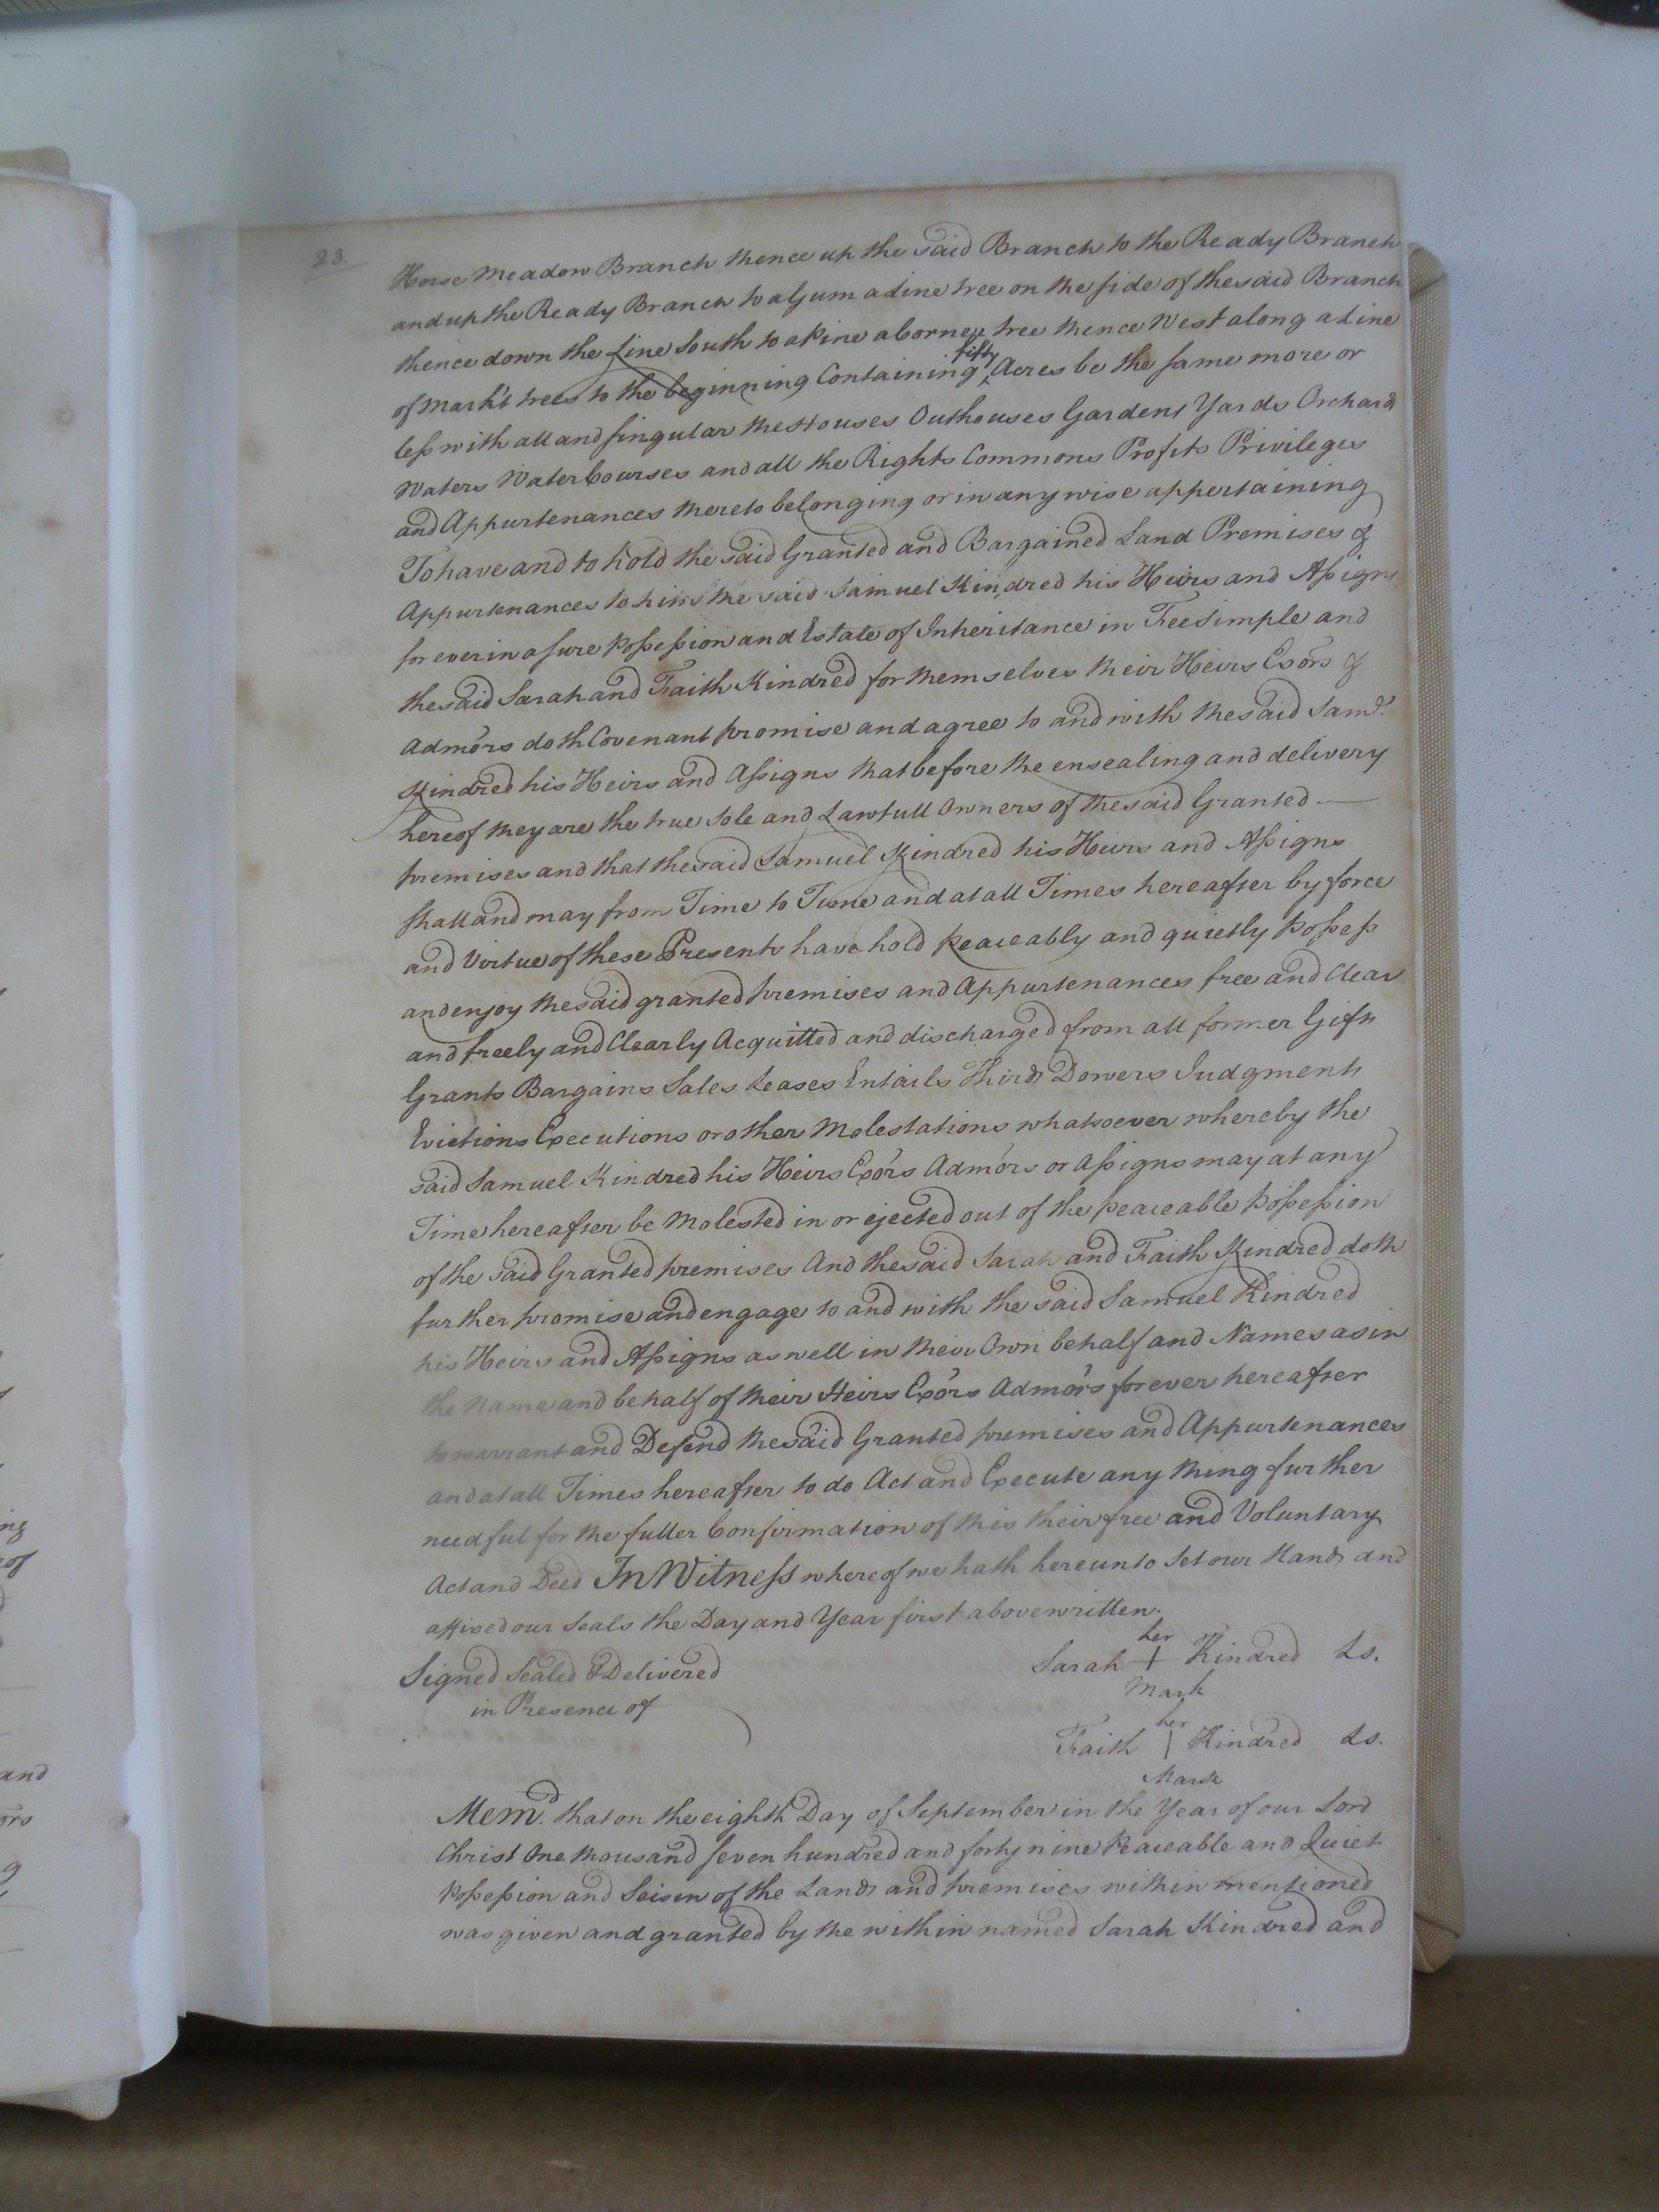 23.
Horse Meadow Branch thence up the said Branch to the Ready Branch
and up the Ready Branch to a Gum a Line tree on the side of the said Branch
thence down the Line South to a Pine a Corner tree thence West along a Line
of Mark't trees to the beginning Containing fifty Acres be the same more or
less with all and singular the Houses Outhouses Gardens Yards Orchards
Waters Water Courses and all the Rights Commons Profits Privileges
and Appurtenances thereto belonging or in any wise appertaining
To have and to hold the said Granted and Bargained Land Premises &
Appurtenances to him the said Samuel Kindred his Heirs and Assigns
for ever in a sure Possession and Estate of Inheritance in Fee Simple and
the said Sarah and Faith Kindred for themselves their Heirs Exors &
Admors doth Covenant promise and agree to and with the said Saml.
Kindred his Heirs and Assigns that before the ensealing and delivery
hereof they are the true Sole and Lawfull Owners of the said Granted
premises and that the said Samuel Kindred his Heirs and Assigns
shall and may from Time to Time and at all Times hereafter by force
and Virtue of these Presents have hold Peaceably and quietly Possess
and enjoy the said granted premises and Appurtenances free and Clear
and freely and Clearly Acquitted and discharged from all former Gifts
Grants Bargains Sales Leases Entails Thirds Dowers Judgments
Evictions Executions or other Molestations whatsoever whereby the
said Samuel Kindred his Heirs Exors Admors or Assigns may at any
Time hereafter be Molested in or ejected out of the peaceable Possession
of the said Granted premises And the said Sarah and Faith Kindred doth
further promise and engage to and with the said Samuel Kindred
his Heirs and Assigns as well in their Own behalf and Names as in
the Name and behalf of their Heirs Exors Admors for ever hereafter
to warrant and Defend the said Granted premises and Appurtenances
and at all Times hereafter to do Act and Execute any thing further
needful for the fuller Confirmation of this their free and Voluntary
Act and Deed In Witness whereof we hath hereunto Set our Hands and
affixed our Seals the Day and Year first above written.
Signed Sealed & Delivered
in Presence of
her
Sarah + Kindred Ls.
Mark
her
Faith | Kindred Ls.
Mark
Memd. that on the eighth Day of September in the Year of our Lord
Christ One thousand seven hundred and forty nine Peaceable and Quiet
Possession and Seisin of the Lands and premises within mentioned
was given and granted by the within named Sarah Kindred and